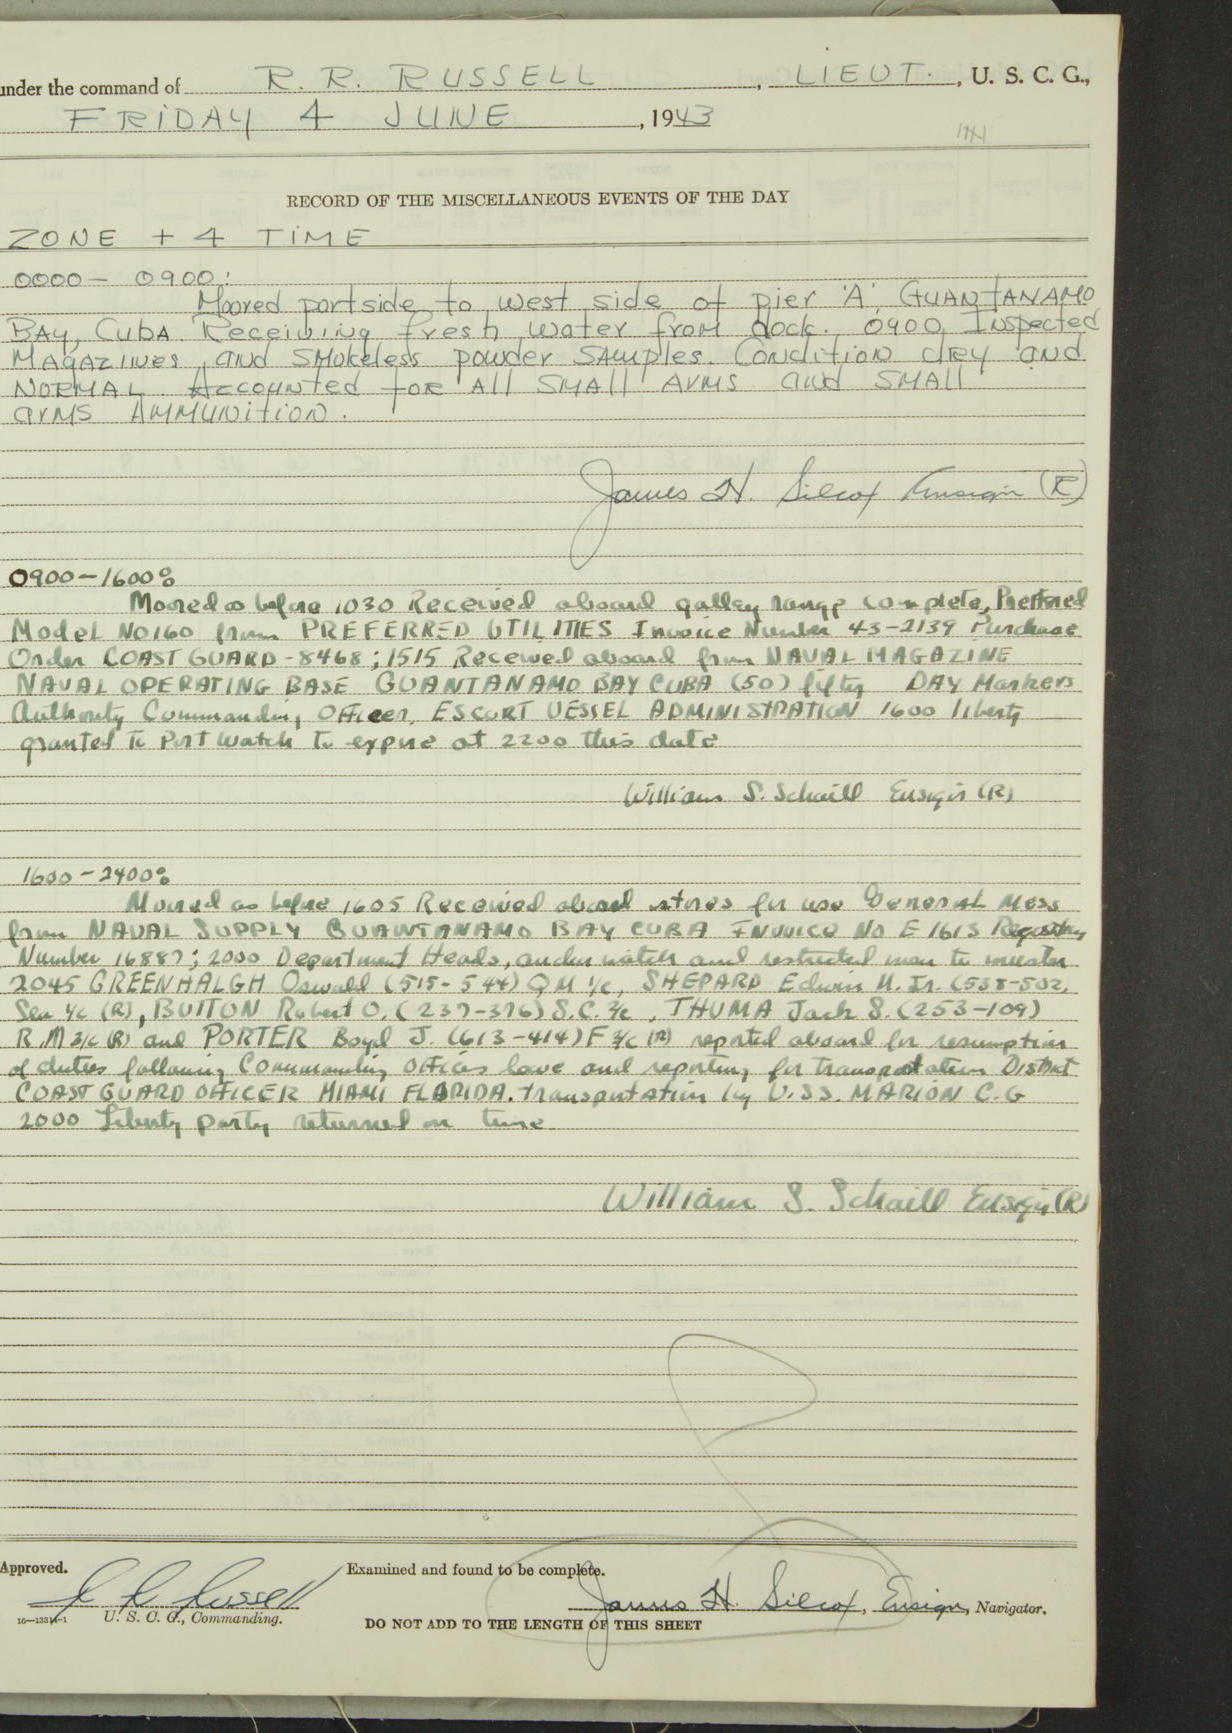 under the command of R. R. RUSSELL, LIEUT., U. S. C. G.,
FRIDAY 4 JUNE, 1943
RECORD OF THE MISCELLANEOUS EVENTS OF THE DAY
ZONE + 4 TIME
0000 - 0900:
Moored portside to west side of pier 'A' GUANTANAMO
BAY, CUBA. Receiving fresh water from dock. 0900 Inspected
MAGAZINES and SMOKELESS powder SAMPLES. Condition dry and
NORMAL Accounted for All SMALL ARMS and SMALL
ARMS AMMUNITION.
James H. Silcox Ensign (R)
0900-1600%
Moored as before 1030 Received aboard galley range complete, Preferred
Model No 160 from PREFERRED UTILITIES Invoice Number 43-2139 Purchase
Order COAST GUARD - 8468; 1515 Received aboard from NAVAL MAGAZINE
NAVAL OPERATING BASE GUANTANAMO BAY CUBA (50) fifty DAY Markers
Authority Commanding Officer, ESCORT VESSEL ADMINISTRATION 1600 liberty
granted to Port Watch to expire at 2200 this date
William S. Schaill Ensign (R)
1600-2400%
Moored as before 1605 Received aboard stores for use General Mess
from NAVAL SUPPLY GUANTANAMO BAY CUBA INVOICE No E 1613
Number 16887; 2000 Department Heads, anchor watch and restricted men to muster
2045 GREENHALGH Oswald (515-544) QM 1/c, SHEPARD Edwin H. Jr. (538-502)
Sea 1/c (R), BUTTON Robert O. (237-376) S.C. 3/c, THUMA Jack S. (253-109)
R.M 3/c (R) and PORTER Boyd J. (613-414) F 3/c (R) reported aboard for resumption
of duties following Commanding Officers leave and reporting for transportation District
COAST GUARD OFFICER MIAMI FLORIDA. Transportation by U.S.S. MARION C.G
2000 Liberty party returned on time
William S. Schaill Ensign (R)
Approved. Examined and found to be complete.
R R Russell James H. Silcox, Ensign, Navigator.
16-13314-1 U. S. C. G., Commanding.
DO NOT ADD TO THE LENGTH OF THIS SHEET